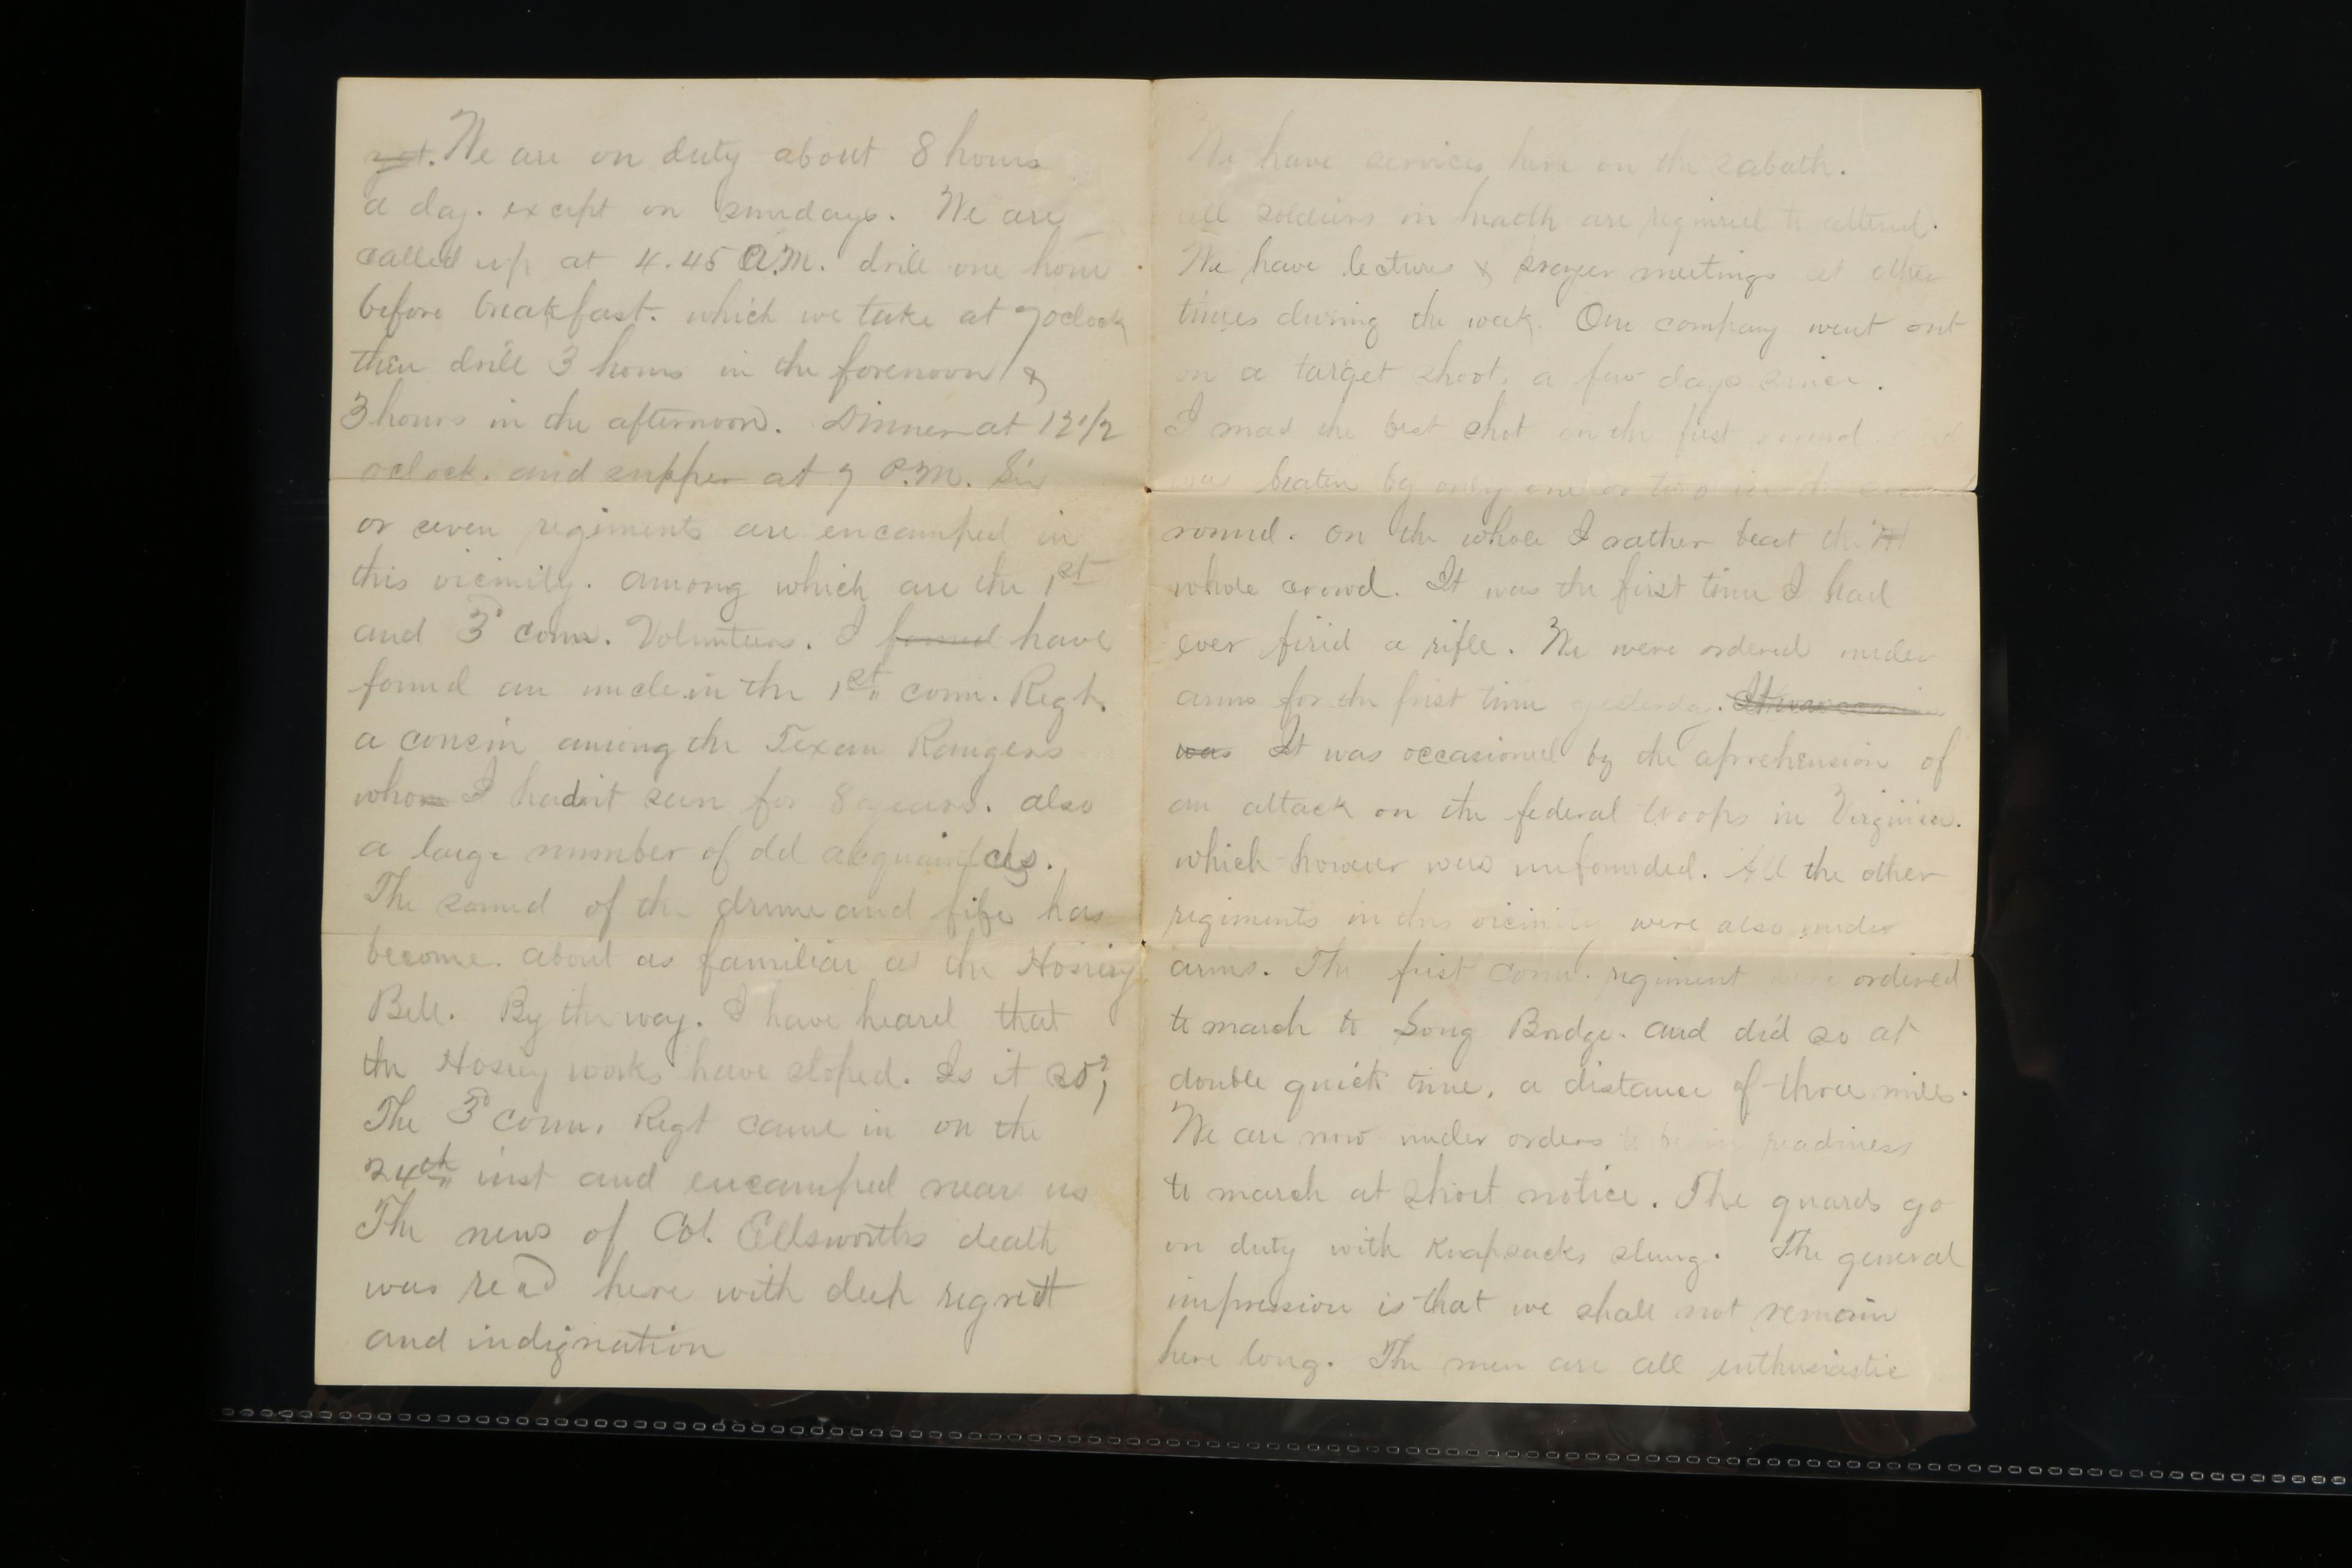 yet. We are on duty about 8 hours
a day. except on sundays. We are
called up at 4.45 A.M. drill one hour
before breakfast. which we take at 7 oclock
then drill 3 hours in the forenoon &
3 hours in the afternoon. Dinner at 12 1/2
oclock. and supper at 7 P.M. Six
or seven regiments are encamped in
this vicinity. among which are the 1st
and 3d Conn. Volunteers. I found have
found an uncle in the 1st Conn. Regt.
a cousin among the Texan Rangers
whom I hadnt seen for 8 years. also
a large number of old
The sound of the drum and fife has
become. about as familiar as the Hosiery
Bell. By the way. I have heard that
the Hosiery works have stoped. Is it so?
The 3d Conn. Regt came in on the
24th inst and encamped near us
The news of Col. Ellsworths death
was read here with deep regrett
and indignation
We have services here on the sabath.
all soldiers in health are required to attend.
We have lectures & prayer meetings at other
times during the week. Our company went out
on a target shoot, a few days since.
I mad the best shot on the first round.
was beaten by only one or two in the
round. on the whole I rather beat the
whole crowd. It was the first time I had
ever firid a rifle. We were ordered under
arms for the first time yesterday. It was
was It was occasioned by the aprehension of
an attack on the federal troops in Virginia.
which however were unfounded. All the other
regiments in this vicinity were also under
arms. The first Conn. regiment were ordered
to march to Long Bridge. and did so at
double quick time, a distance of three miles.
We are now under orders to be in readiness
to march at short notice. The guards go
on duty with Knapsacks slung. The general
impression is that we shall not remain
here long. The men are all enthusiastic